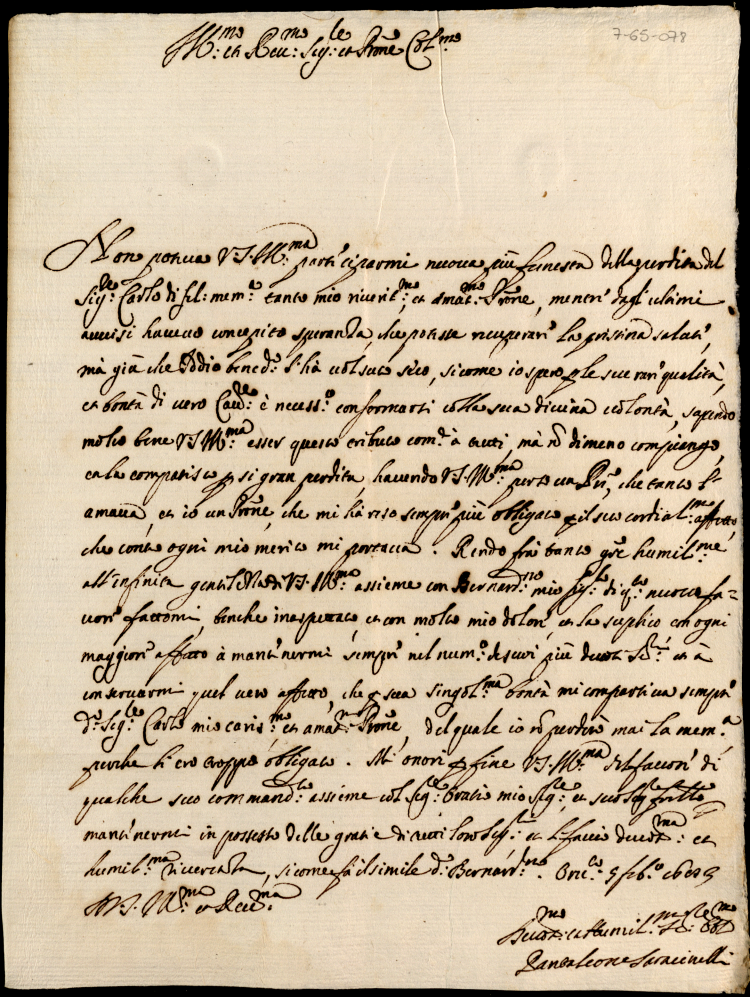 Ill:mo et Reu:mo Sig:le et Prōne Col:mo
7-65-078
Non poteua V.S. Ill:ma parteciparmi nuoua più funesta della perdita del
Sig:le Carlo di fel: mem:a tanto mio riuerit:mo, et amat:mo Prōne, mentre dagli ultimi
auuisi haueuo concepito speranza, che potesse ricuperare la pristina salute,
mà già che Iddio bened:o l'hà uolsuto seco, si come io spero p le sue rare qualità,
et bontà di uero Cau:re è necess:o conformarsi colla sua diuina uolontà, sapendo
molto bene V.S. Ill:ma esser questo tributo com:e à tutti, mà nō dimeno compiango,
et la compatisco p si gran perdita, hauendo V.S. Ill:ma perso un che tanto l'
amaua, et io un Prōne, che mi hà reso sempre più obligato p il suo cordial:mo affetto,
che contro ogni mio merito mi portaua. Rendo frà tanto grē humil:me
all'infinita gentilezza di V.S. Ill:ma assieme con Bernard:no mio di q:to nuouo fa-
uore fattomi, benche inaspettato, et con molto mio dolore, et la suplico con ogni
maggior affetto à mantenermi sempre nel num:o de suoi più deuoti Se:ri et à
conseruarmi quel uero affetto, che p sua singol:ma bontà mi compartiua sempre
d:o Sig:le Carlo mio caris:mo et amat:mo Prōne, del quale io nō perderò mai la mem:a
perche li ero troppo obligato. Mi onori p fine V.S. Ill:ma del fauore di
qualche suo command:to assieme col Sig:le Oratio mio Sig:le, et suo Sig:le frttō
mantenermi in possesso delle gratie di tutti loro Sig:ri et li faccio deuot:ma et
humil:ma riuerenza, si come fà il simile d:o Bernard:no. Oru:to 5 feb:o
Di V.S. Ill:ma et Reu:ma
Deuot:mo et Humil:mo Se:re Obl:mo
Pantaleone Saracinelli